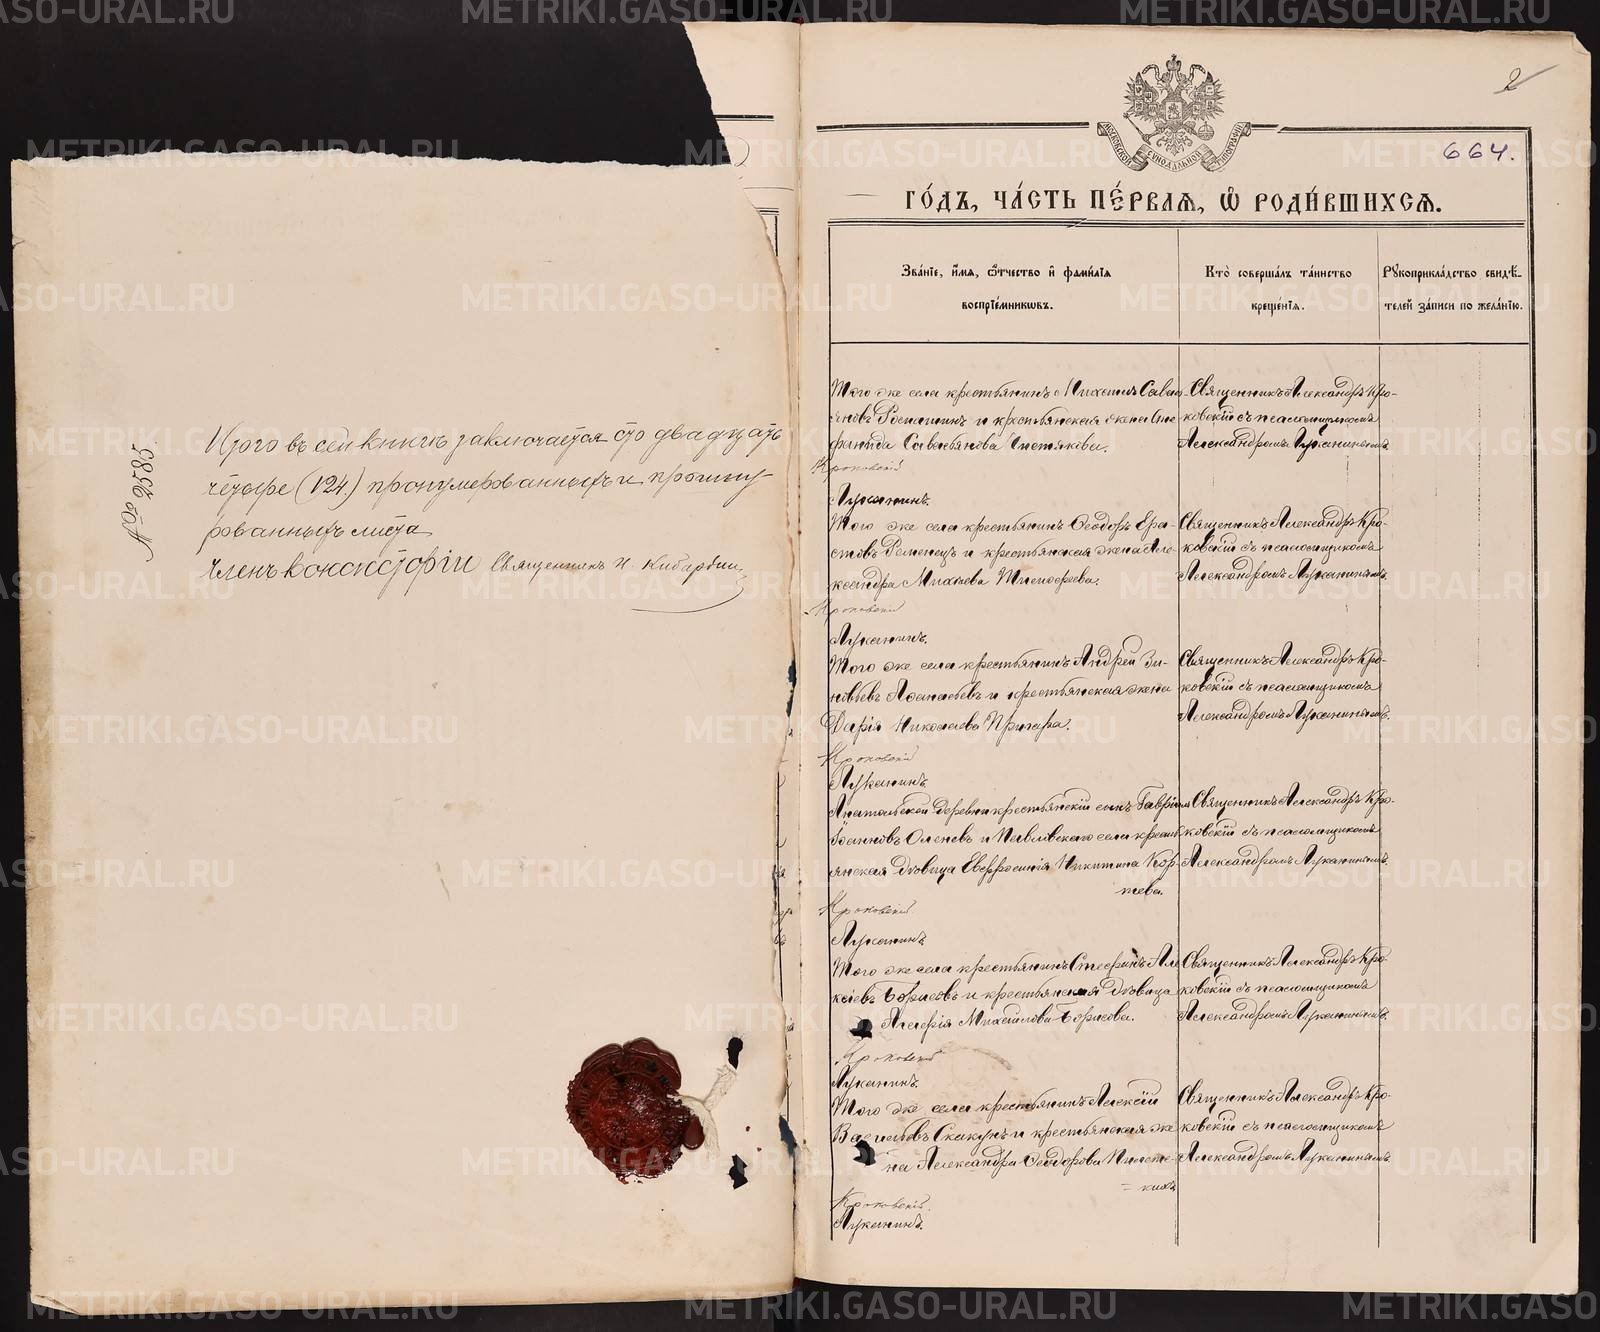 № 2585.
Итого въ сей книгѣ заключается сто двадцать
четыре (124.) пронумерованныхъ и прошну-
рованныхъ листа
членъ консисторіи Священникъ
МОСКОВСКОЙ СѴНОДАЛЬНОЙ ТИПОГРАФІИ
2
664.
ГО́ДЪ, ЧА́СТЬ ПЕ́РВАѦ, Ѡ҆ РОДИ́ВШИХСѦ.
Зва́нїе, и҆́мѧ, ѻ҆́тчество и҆ фами́лїѧ
воспрїе́мникѡвъ.
Кто̀ соверша́лъ та́инство
креще́нїѧ.
Рꙋкоприкла́дство свидѣ́-
телей за́писи по жела́нїю.
Того же села крестьянинъ Михаилъ Савва-
и крестьянская жена
Савватьянова
Крековскій
Лукининъ.
Священникъ Александръ Кро-
ковскій съ псаломщикомъ
Александромъ Лукининымъ.
Того же села крестьянинъ Ѳеодоръ Ера-
стовъ Ременецъ и крестьянская жена Але-
ксандра Михѣева Тимоѳеева.
Кроковскій
Лукининъ.
Священникъ Александръ Кро-
ковскій съ псаломщикомъ
Александромъ Лукининымъ.
Того же села крестьянинъ Андрей Зи-
новьевъ Аѳанасьевъ и крестьянская жена
Дарія Николаева
Кроковскій
Лукининъ.
Священникъ Александръ Кро-
ковскій съ псаломщикомъ
Александромъ Лукининымъ.
деревни крестьянскій сынъ Гавріилъ
Іоанновъ Оленевъ и Павловскаго села кресть-
янская дѣвица Евфросинія Никитина Кор-
нева.
Кроковскій
Лукининъ.
Священникъ Александръ Кро-
ковскій съ псаломщикомъ
Александромъ Лукининымъ.
Того же села крестьянинъ Стефанъ Але-
ксіевъ Борисовъ и крестьянская дѣвица
Михаилова Борисова.
Кроковскій
Лукининъ.
Священникъ Александръ Кро-
ковскій съ псаломщикомъ
Александромъ Лукининымъ.
Того же села крестьянинъ Алексій
Васильевъ Скакунъ и крестьянская же-
на Александра Ѳеодорова
Кроковскій.
Лукининъ.
Священникъ Александръ Кро-
ковскій съ псаломщикомъ
Александромъ Лукининымъ.
METRIKI.GASO-URAL.RU